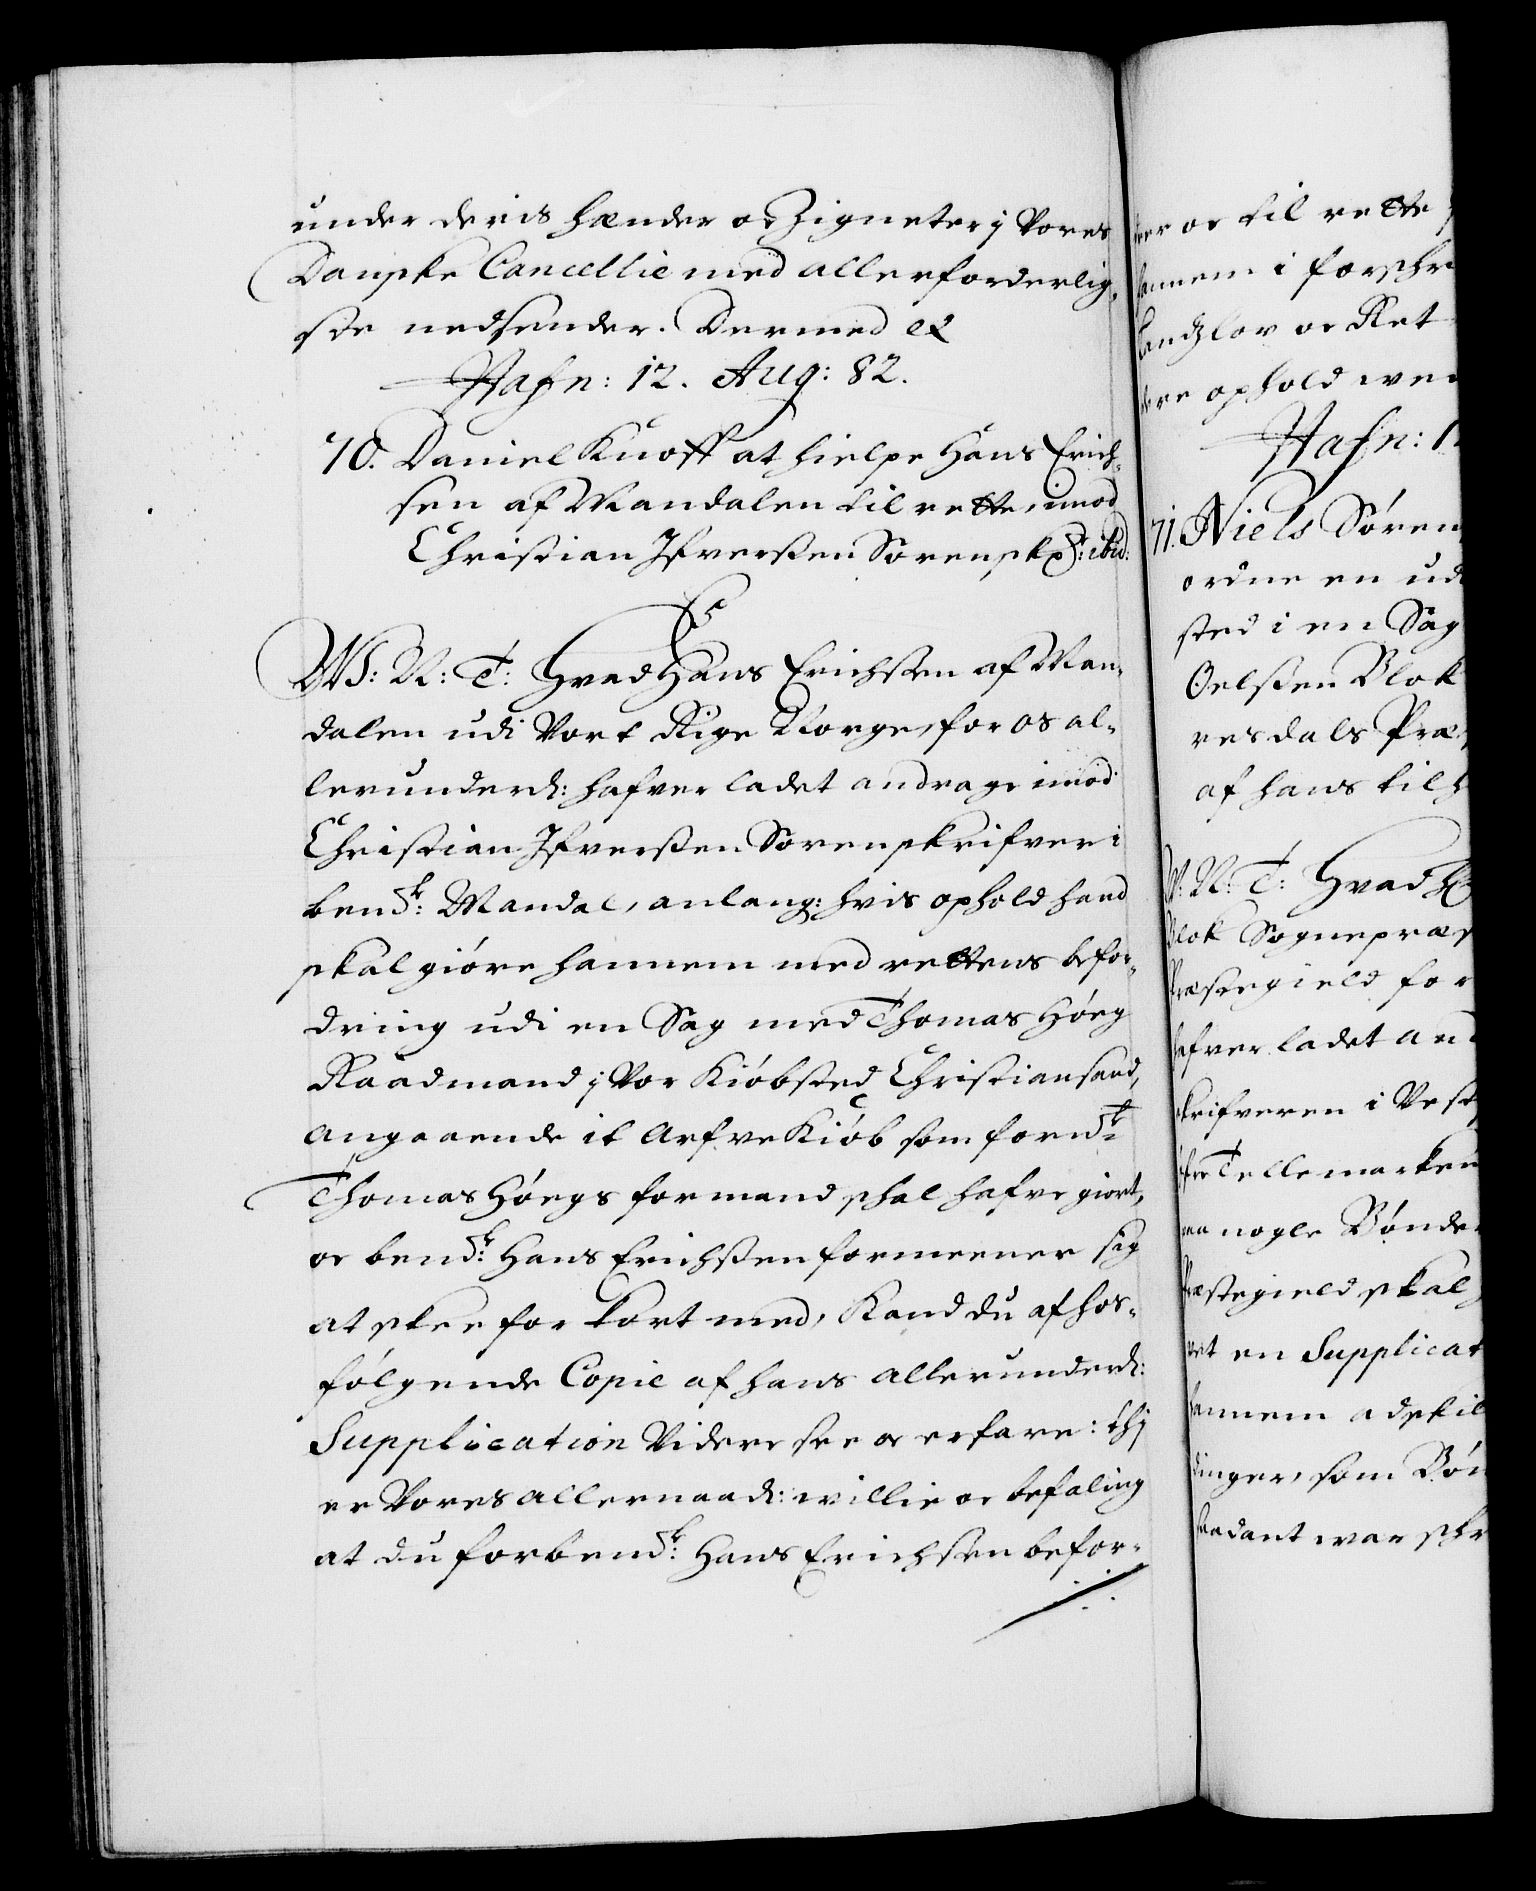 under deris hænder oc Zigneter j Vores
Danske Cancellie med allerforderlig-
ste nedsender. Dermed etc
Hafn: 12. Aug: 82.
70. Daniel Knoff at hielpe Hans Erich-
sen af Mandalen til rette, imod
Christian Ifverssen Sorenskr: ibid:
C5
W: N: T: Hvad Hans Erichssen af Man-
dalen udi Vort Rige Norge, for os al-
lerunderd: hafver ladet andrage imod
Christian Ifverssen Sorenskrifver i
bemte: Mandal, anlang: hvis ophold hand
skal giöre hannem med rettens befor-
dring udi en Sag med Thomas Höeg
Raadmand j Vor Kiöbsted Christiansand,
angaaende it Arfve Kiöb som fornte
Thomas Höegs formand schal hafve giort,
oc bemte: Hans Erichssen formeener sig
at skee for kort med, Kand du af hos-
fölgende Copie af hans allerunderd:
Supplication Videre see oc erfare: thj
er Vores allernaad: willie oc befaling
at du forbemte: Hans Erichssen befor-
oc til rette
hannem i forschr
Landzlov oc Ret
ophold
Hafn: 1
71. Niels Sören
ordne en ud
sted i en Sag
Oelssen Blok
resdals Præ
af hans tilh
W: N: T: Hvad H
Blok Sognepræs
Præstegield for
hafver ladet an
skrifveren i Vest
öfre Tellemarken
paa nogle Bönder
Præstegield skal
ret en Supplicat
hannem adskil
dinger, som Bön
saadant var skr